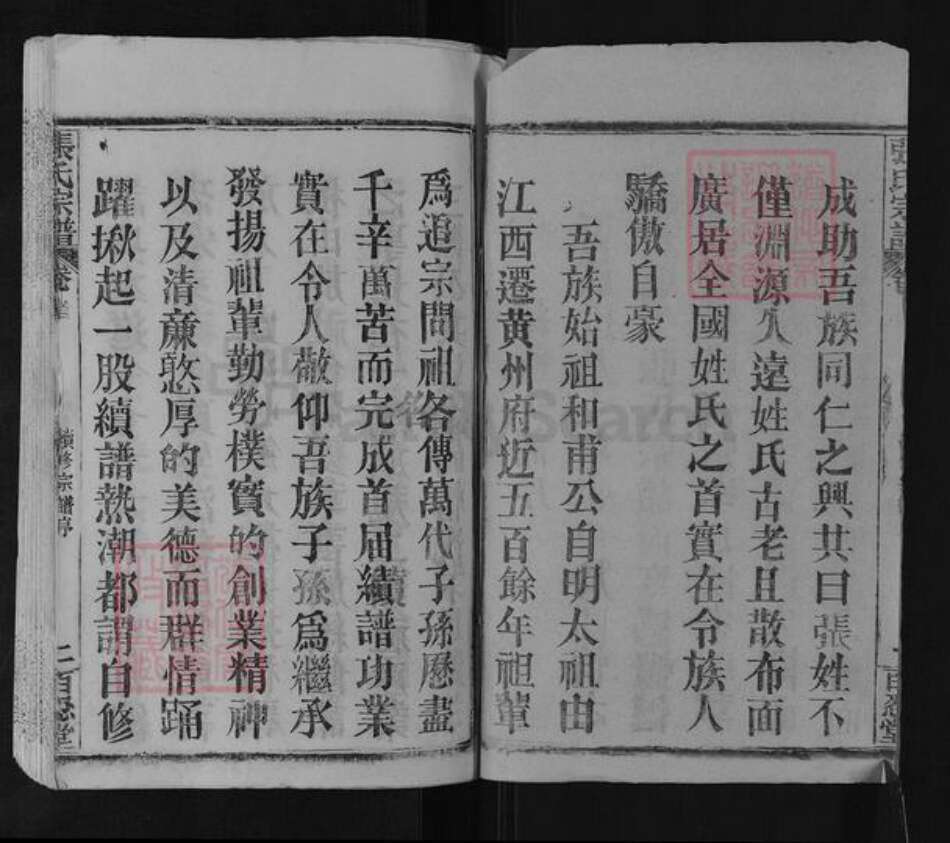 成助吾族同仁之興共曰張姓不
僅淵源久遠姓氏古老且散布面
廣居全國姓氏之首實在令族人
驕傲自豪
吾族始祖和甫公自明太祖由
江西遷黄州府近五百餘年祖輩
爲追宗問祖各傳萬代子孫歷盡
千辛萬苦而完成首届續譜功業
實在令人敬仰吾族子孫爲繼承
發揚祖輩勤勞樸實的創業精神
以及清亷憨厚的美德而群情踊
躍揪起一股續譜熱潮都謂自修
張氏宗譜
卷首
續修宗譜序
二百忍堂